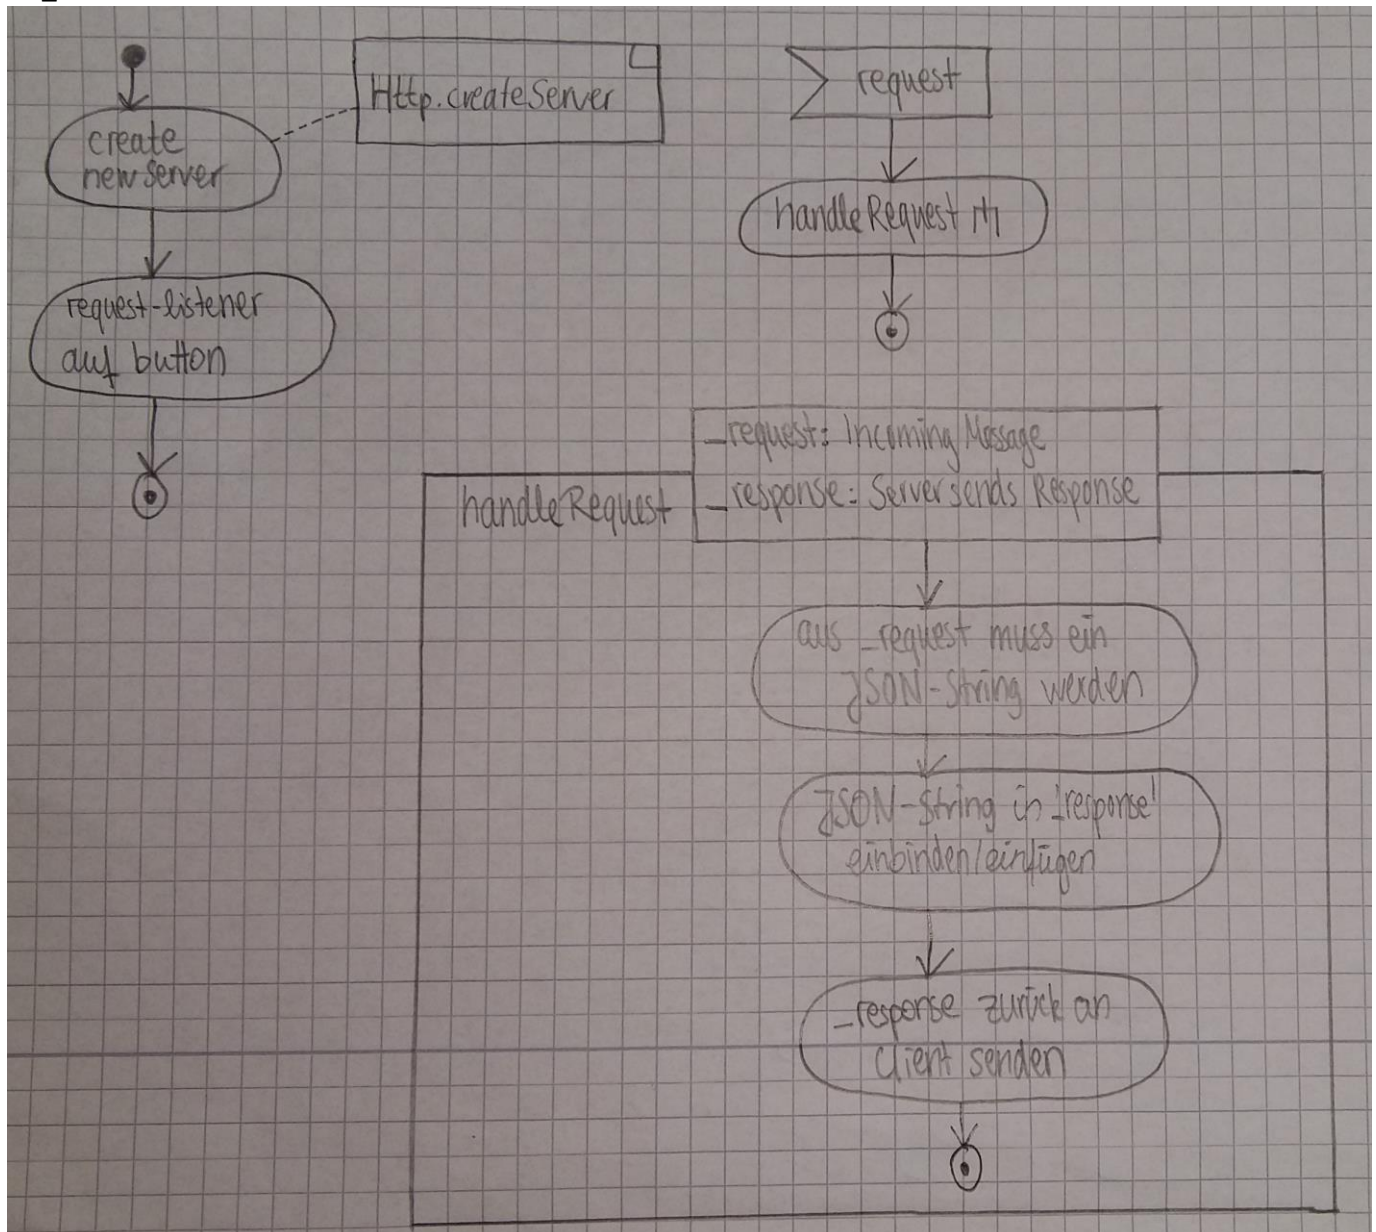 create
new Server
Http.createServer
request-listener
auf button
request
handleRequest
handleRequest
_request: Incoming Message
_response: Server sends Response
aus _request muss ein
JSON-String werden
JSON-String in '_response'
einbinden/einfügen
_response zurück an
Client senden